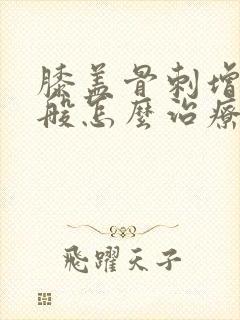 膝盖骨刺增
般怎麼治療
飛躍天子